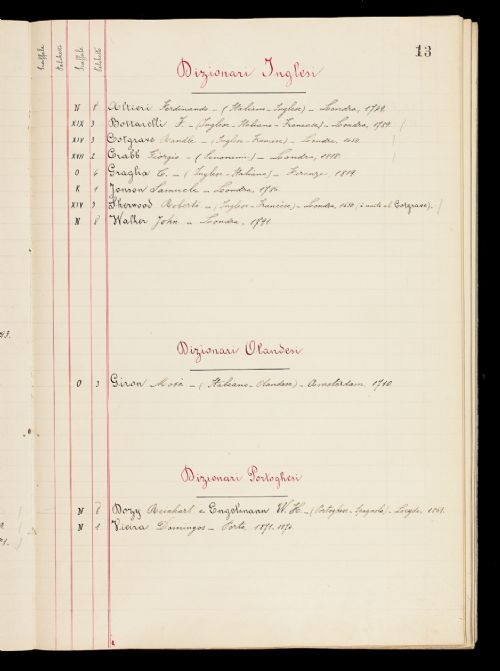 13
Scaffale Palchetto Scaffale Palchetto
Dizionari Inglesi
N 8 Altieri Ferdinando - (Italiano-Inglese) - Londra, 1749.
XIX 3 Bottarelli F. - (Inglese-Italiano-Francese) - Londra, 1789.
XIV 3 Cotgrave Randle - (Inglese-Francese) - Londra, 1650.
XVII 2 Crabb Giorgio - (Sinonimi) - Londra, 1818.
O 4 Graglia C. - (Inglese-Italiano) - Firenze, 1819.
K 1 Jonson Samuele - Londra, 1786
XIV 3 Sherwood Roberto - (Inglese-Francese) - Londra, 1650 (è unito al Cotgrave).
N 8 Walker John - Londra, 1791.
Dizionari Olandesi
O 3 Giron Mosè - (Italiano-Olandese) - Amsterdam 1710
Dizionari Portoghesi
N 8 Dozy Reinhart e Engelmann W. H. - (Portoghese-Spagnolo) - Leyde, 1869.
N 1 Vieira Domingos - Porto 1871.1874